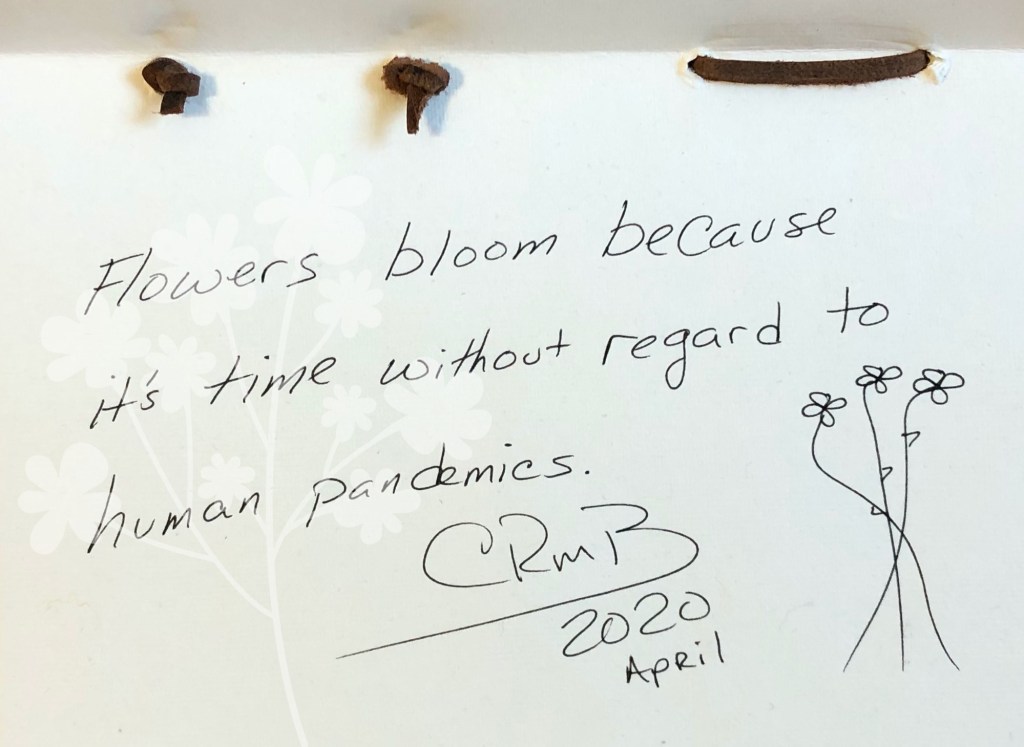 Flowers bloom because
it's time without regard to
human pandemics.
CRmB
2020
April